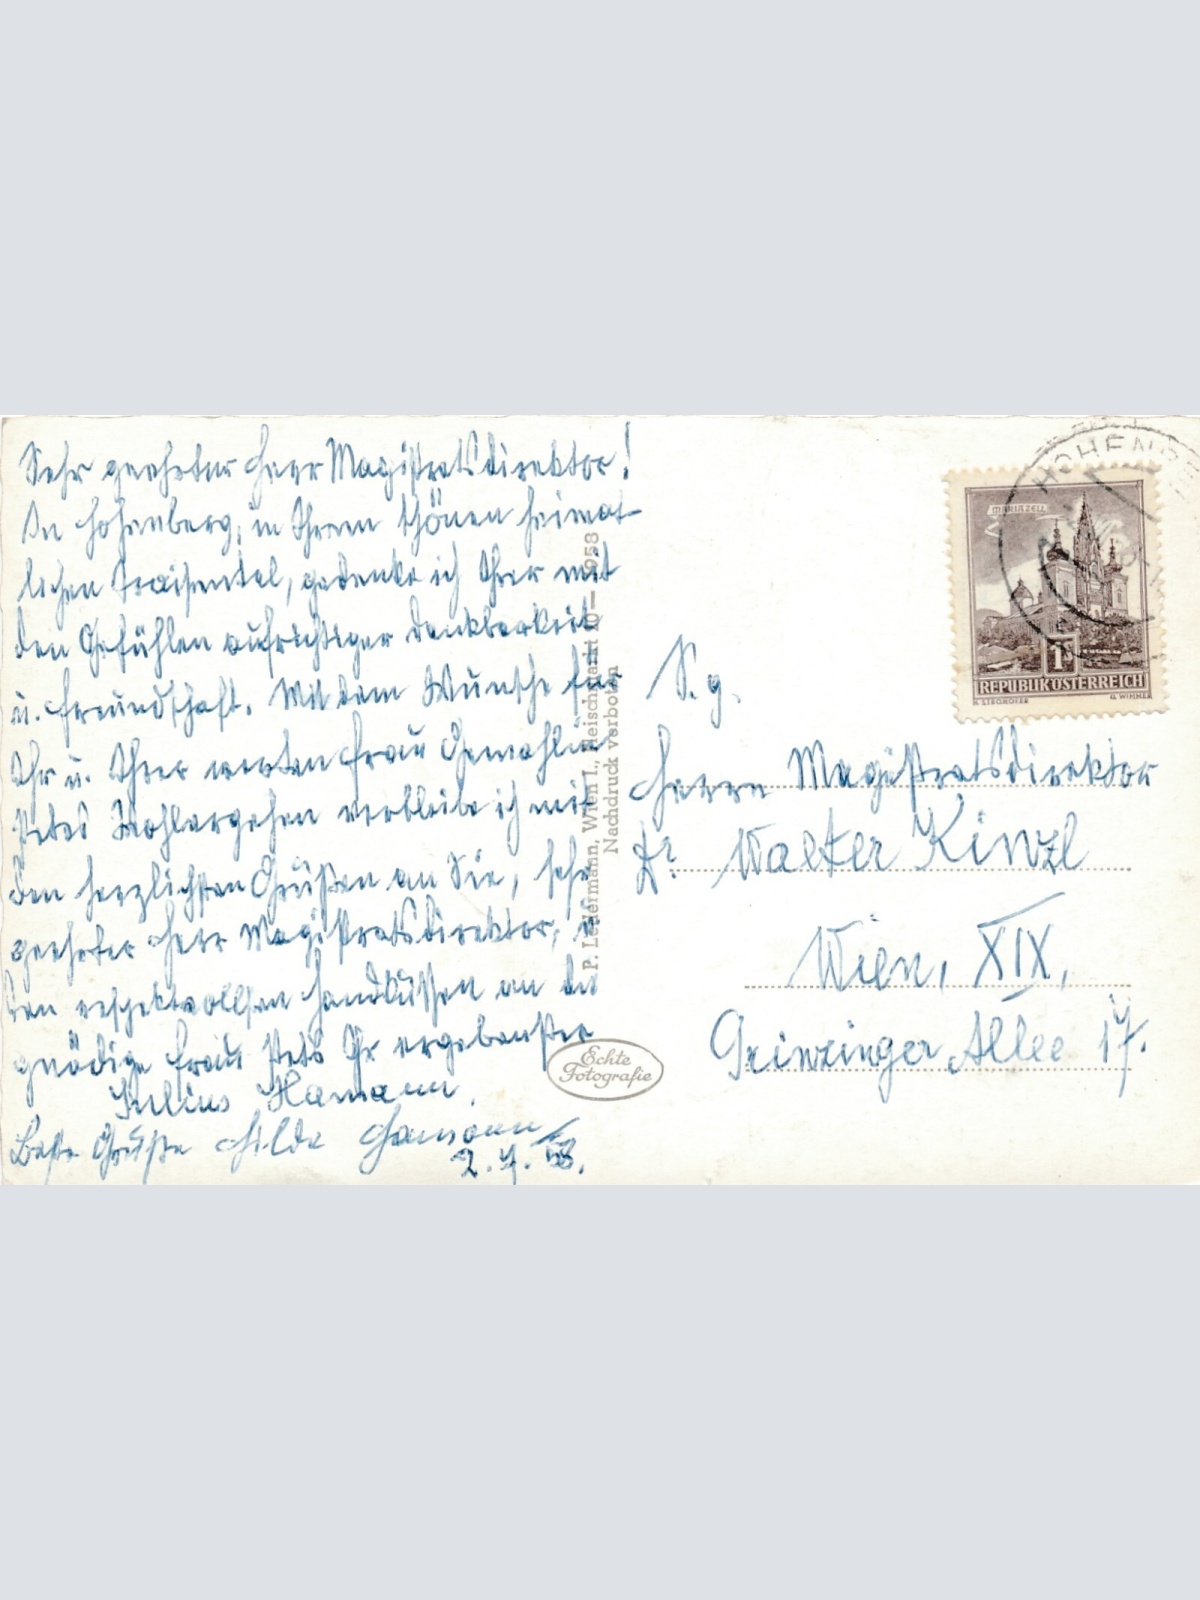 Sehr geehrter Herr Magistratsdirektor!
In Hohenberg, in Ihrem schönen heimat-
lichen Traisental, gedenke ich Ihrer mit
den Gefühlen aufrichtiger Dankbarkeit
u. Freundschaft. Mit dem Wunsche für
Ihr u. Ihrer werten Frau Gemahlin
stetes Wohlergehen verbleibe ich mit
den herzlichsten Grüßen an Sie, sehr
geehrter Herr Magistratsdirektor, u.
den respektvollsten Handküssen an die
gnädige Frau stets Ihr ergebenster
Julius Hamann.
Beste Grüße Hilde Hamann
2. 7. 58.
P. Ledermann, Wien I., Fleischmarkt 20 — 1958
Nachdruck verboten
Echte
Fotografie
HOHENBE
MARIAZELL
1 S
REPUBLIK ÖSTERREICH
G. WIMMER
S. g.
Herrn Magistratsdirektor
Dr. Walter Kinzl
Wien, XIX,
Grinzinger Allee 17.